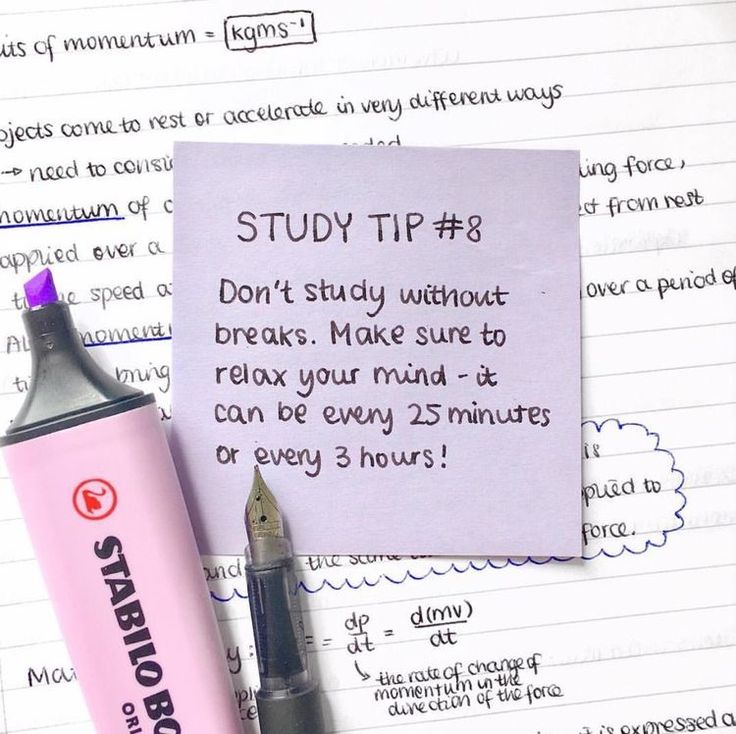 of momentum = kgms⁻¹
come to rest or accelerate in very different ways
→ need to
force,
momentum of
from rest
applied over a
speed
over a period of
STUDY TIP #8
Don't study without
breaks. Make sure to
relax your mind - it
can be every 25 minutes
or every 3 hours!
bring
is
to
force.
the same
= dp/dt = d(mv)/dt
the rate of change of
momentum in the
direction of the force
is expressed
STABILO